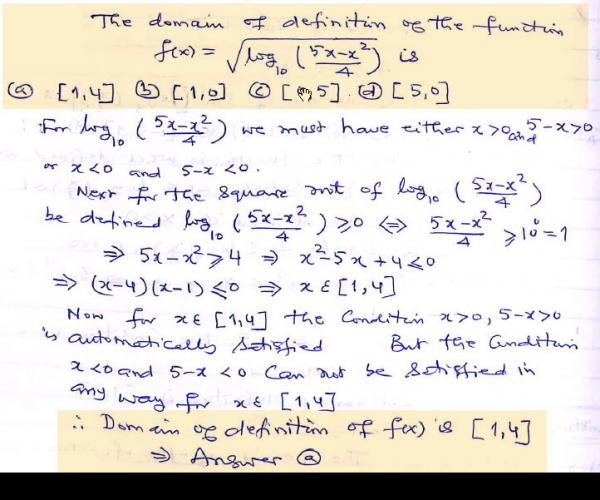 The domain of definition of the function
f(x) = √log₁₀ ((5x-x²)/4) is
(a) [1,4] (b) [1,0] (c) [ ,5] (d) [5,0]
For log₁₀ ((5x-x²)/4) we must have either x>0 and 5-x>0
or x<0 and 5-x<0.
Next for the square root of log₁₀ ((5x-x²)/4)
be defined log₁₀ ((5x-x²)/4) ⩾0 ⇔ (5x-x²)/4 ⩾10⁰=1
⇒ 5x-x²⩾4 ⇒ x²-5x+4⩽0
⇒ (x-4)(x-1)⩽0 ⇒ x ε [1,4]
Now for xε [1,4] the condition x>0, 5-x>0
is automatically satisfied But the condition
x<0 and 5-x<0 can not be satisfied in
any way for x ε [1,4]
∴ Domain of definition of f(x) is [1,4]
⇒ Answer (a)